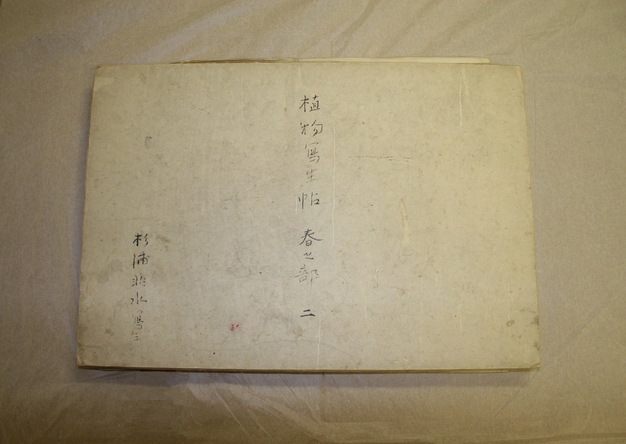 植物寫生帖 春之部 二
杉浦非水寫生